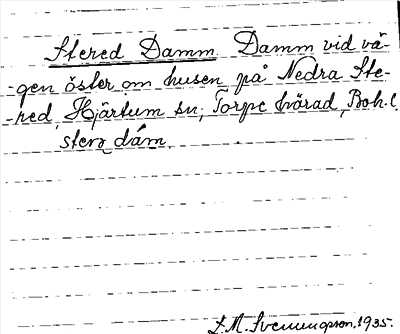 Stered Damm. Damm vid vä-
-gen öster om husen på Nedra Ste-
-red, Hjärtum sn, Torpe härad, Boh. l.
stera dám.
L. M. Svenungson. 1935.